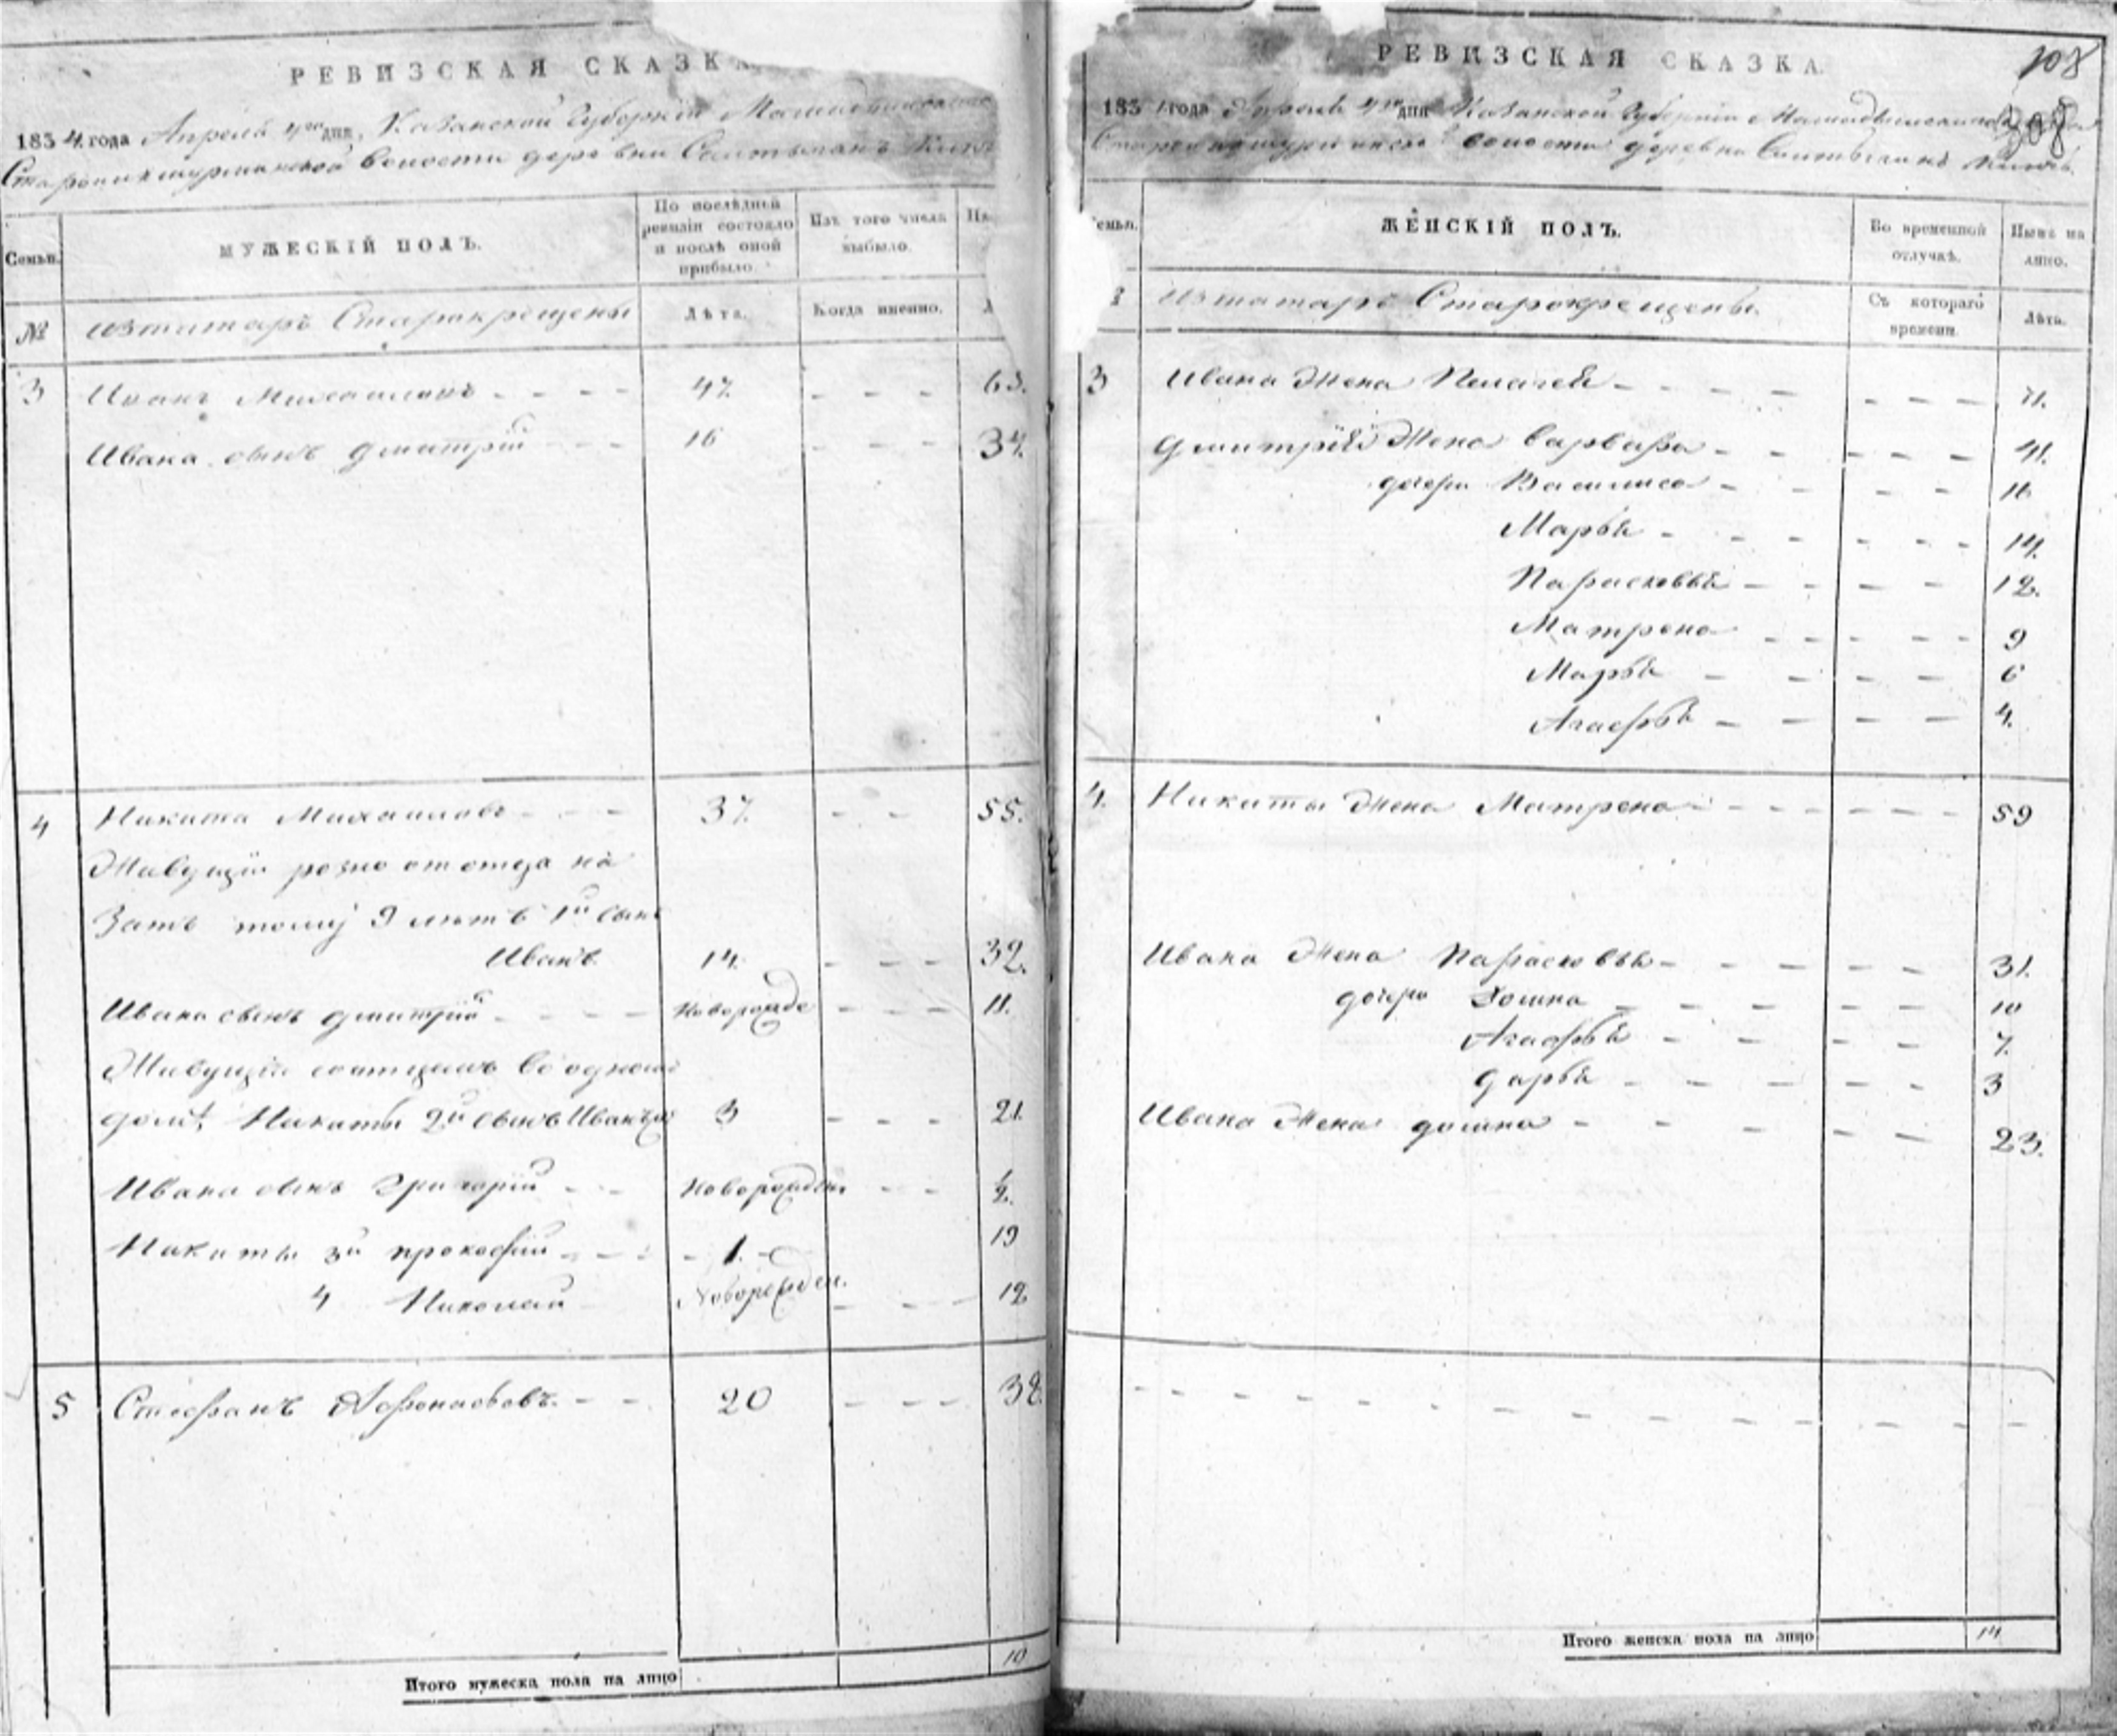 РЕВИЗСКАЯ СКАЗКА
1834 года Апреля дня, Казанской Губернiи
волости деревни
Семьи.
МУЖЕСКIЙ ПОЛЪ.
По послѣдней ревизiи состояло и послѣ оной прибыло.
Изъ того числа выбыло.
№
Изтатаръ Старокрещены
Лѣта.
Когда именно.
3 Иванъ Михаиловъ 47. 65.
Ивана сынъ Дмитрiй 16 34.
4 Никита Михаиловъ 37. 55.
Живущiй розно от отца
тому 9 лѣтъ 1й сынъ
Иванъ 14. 32.
Ивана сынъ Дмитрiй Новорожде 11.
Живущiй сотцемъ во одномъ
домѣ Никиты 2й сынъ Иванъ 3 21.
Ивана сынъ Григорiй Новорожден. 1/2.
Никиты 3й Прокофiй 1. 19
4 Николай Новорожден. 12
5 Стефанъ Афонасьевъ 20 38.
Итого мужеска пола на лицо 10
РЕВИЗСКАЯ СКАЗКА.
108
308
1834 года Апреля дня Казанской Губернiи
волости деревни
семьи.
ЖЕНСКIЙ ПОЛЪ.
Во временной отлучкѣ.
Нынѣ на лицо.
Изтатаръ Старокрещены.
Съ котораго времени.
Лѣта.
3 Ивана Жена Пелагея 71.
Дмитрiя Жена Варвара 41.
дочери Василиса 16
Марья 14.
Парасковья 12.
Матрена 9
Марья 6
Агафья 4.
4. Никиты Жена Матрена 59
Ивана Жена Парасковья 31.
дочери 10
Агафья 7.
Дарья 3
Ивана Жена 23.
Итого женска пола на лицо 14